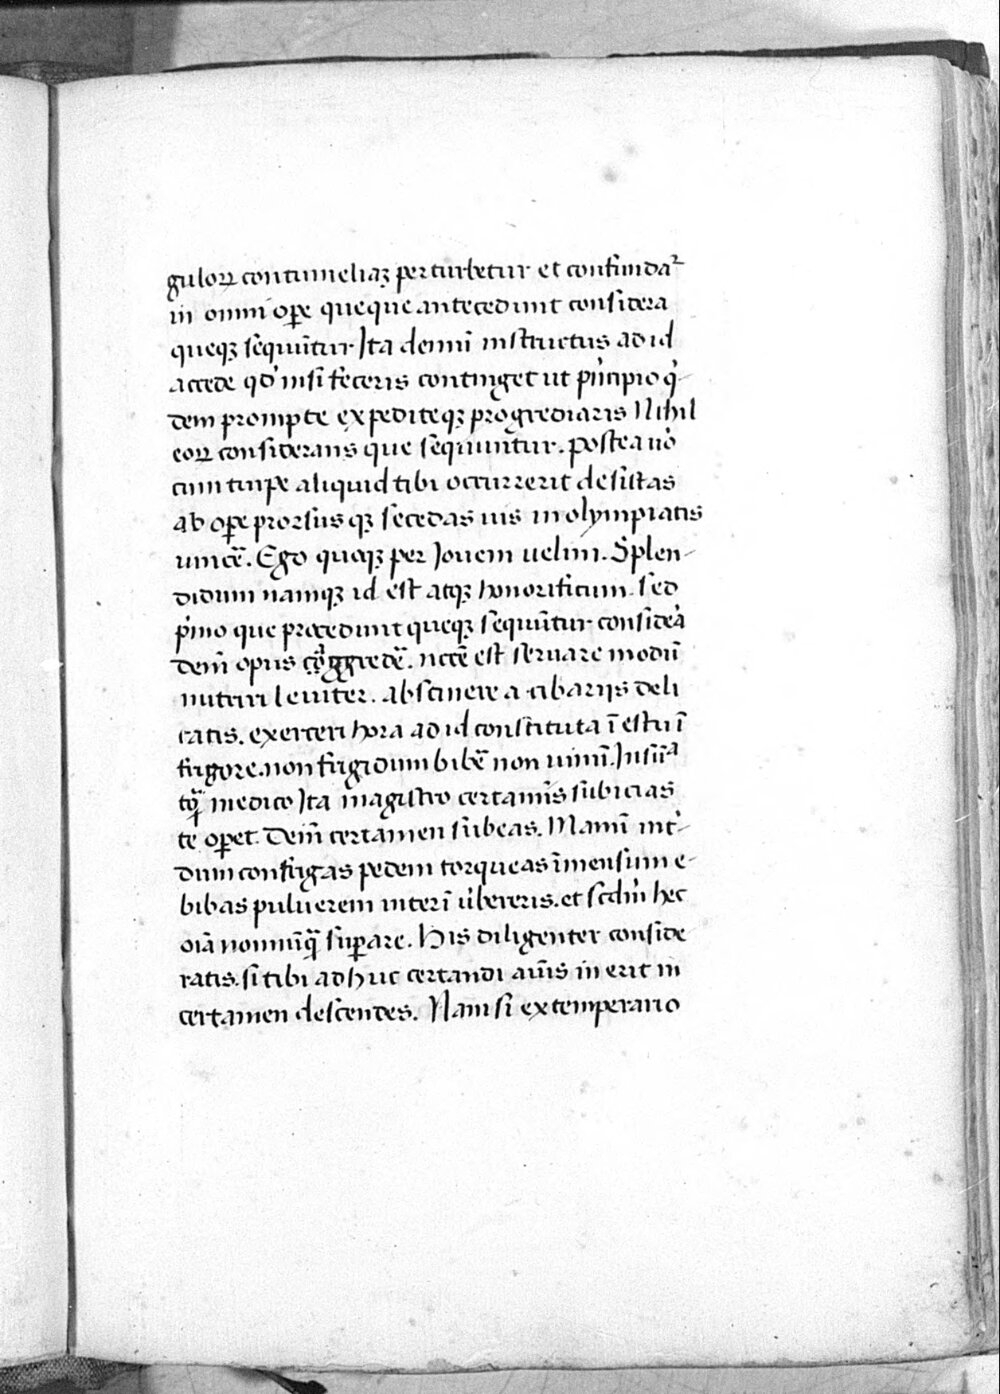 guloꝝ contumeliaꝫ perturbetur et confundaꝰ
in omni oꝑe queque antecedunt considera
queqꝫ sequūtur Ita demū instructus ad id
accede qd̓ nisi feceris continget ut pͥncipio qͥ-
dem prompte expediteqꝫ progrediaris Nihil
eoꝝ considerans que sequuntur. postea u̓o
cum turpe aliquid tibi occurrerit desistas
ab oꝑe prorsus qꝫ secedas uis in olympiatis
uincē. Ego quoqꝫ per Jouem uelim. Splen-
didum namqꝫ id est atqꝫ honorificum. sed
pͥmo que precedunt queqꝫ sequūtur considea̓
dem̄ opus aggredē. nccē est seruare modū
nutriri leuiter. abstinere a cibarijs deli
catis. exerceri hora ad id constituta ī estu ī
frigore. non frigidum bibē non uinū. In sūᵃ
tqᷓ medico Ita magistro certamīs subicias
te oꝑet. Dem̄ certamen subeas. Manū int̓-
dum confrigas pedem torqueas īmensum e-
bibas puluerem interī u̓bereris. et scd̓m hec
oīa nonnūqᷓ suꝑare. His diligenter conside
ratis. si tibi adhuc certandi aīus inerit in
certamen descendes. Nam si extemperario